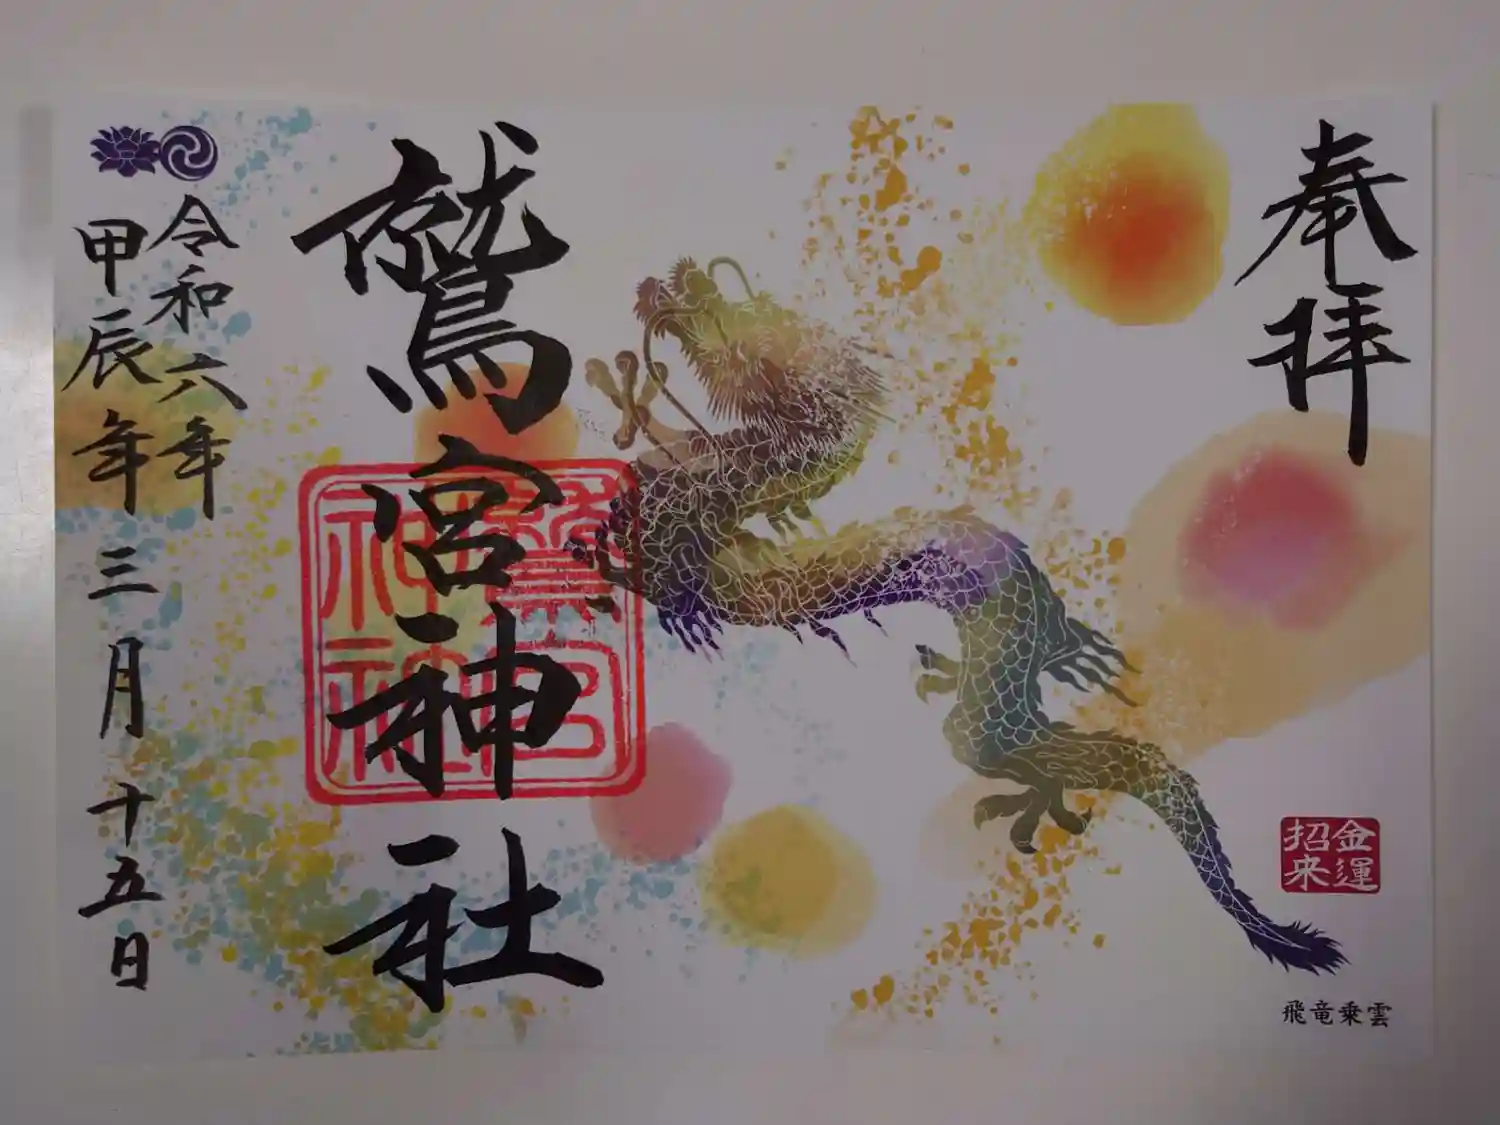 奉拝
金運
招来
飛竜乗雲
鷲宮神社
鷲宮
神社
令和六年
甲辰年三月十五日